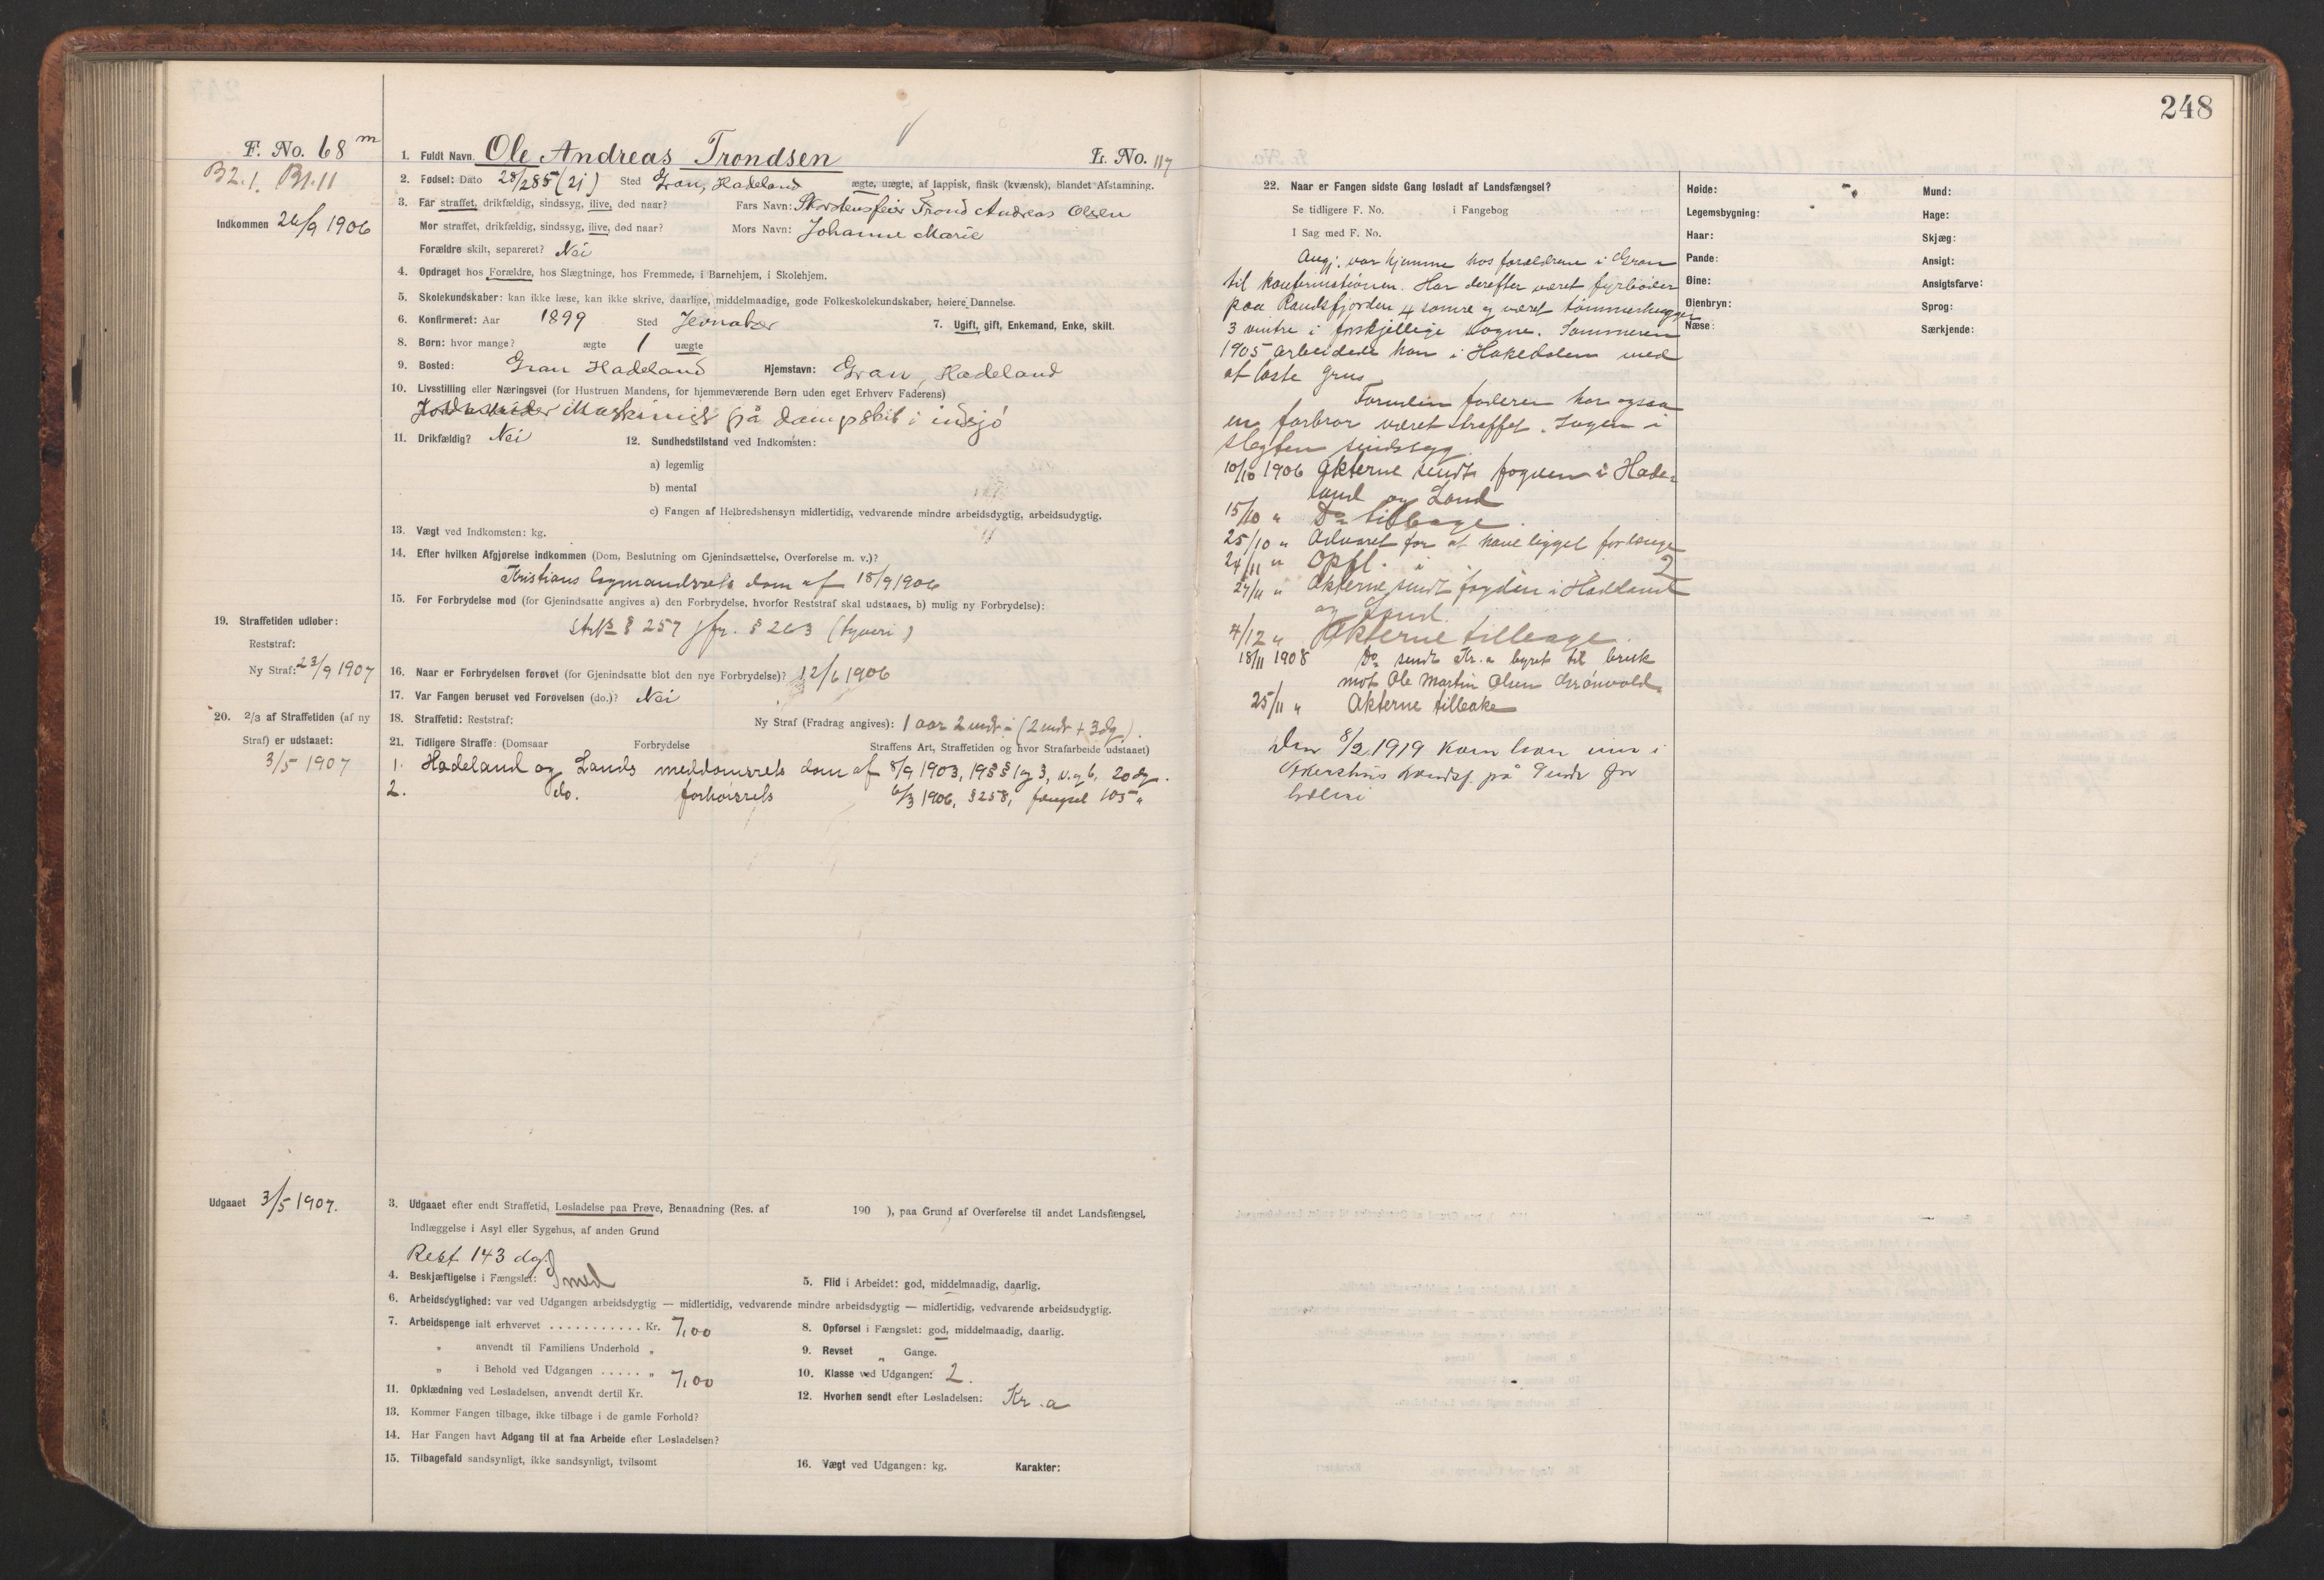 248
F. No. 68 m
B2.1. B1.11
Indkommen 26/9 1906
1. Fuldt Navn. Ole Andreas Trondsen L. No. 117
2. Fødsel: Dato 28/2 85 (21) Sted Gran, Hadeland ægte, uægte, af lappisk, finsk (kvænsk), blandet Afstamning.
3. Far straffet, drikfældig, sindssyg, ilive, død naar? Fars Navn: Skorstensfeier Trond Andreas Olsen
Mor straffet, drikfældig, sindssyg, ilive, død naar? Mors Navn: Johanne Marie
Forældre skilt, separeret? Nei
4. Opdraget hos Forældre, hos Slægtninge, hos Fremmede, i Barnehjem, i Skolehjem.
5. Skolekundskaber: kan ikke læse, kan ikke skrive, daarlige, middelmaadige, gode Folkeskolekundskaber, høiere Dannelse.
6. Konfirmeret: Aar 1899 Sted Jevnaker 7. Ugift, gift, Enkemand, Enke, skilt.
8. Børn: hvor mange? ægte 1 uægte
9. Bosted: Gran Hadeland Hjemstavn: Gran, Hadeland
10. Livsstilling eller Næringsvei (for Hustruen Mandens, for hjemmeværende Børn uden eget Erhverv Faderens)
Maskinist på dampskib i indsjø
11. Drikfældig? Nei 12. Sundhedstilstand ved Indkomsten:
a) legemlig
b) mental
c) Fangen af Helbredshensyn midlertidig, vedvarende mindre arbeidsdygtig, arbeidsudygtig.
13. Vægt ved Indkomsten: kg.
14. Efter hvilken Afgjørelse indkommen (Dom, Beslutning om Gjenindsættelse, Overførelse m. v.)?
Kristians lagmandsrets dom af 18/9 1906
15. For Forbrydelse mod (for Gjenindsatte angives a) den Forbrydelse, hvorfor Reststraf skal udstaaes, b) mulig ny Forbrydelse):
§ 257 jfr. § 263 (tyveri)
19. Straffetiden udløber:
Reststraf:
Ny Straf: 23/9 1907
16. Naar er Forbrydelsen forøvet (for Gjenindsatte blot den nye Forbrydelse)? 12/6 1906
17. Var Fangen beruset ved Forøvelsen (do.)? Nei
20. 2/3 af Straffetiden (af ny
Straf) er udstaaet:
3/5 1907
18. Straffetid: Reststraf: Ny Straf (Fradrag angives): 1 aar 2 mdr ÷ (2 mdr + 3 dg).
21. Tidligere Straffe: (Domsaar Forbrydelse Straffens Art, Straffetiden og hvor Strafarbeide udstaaet)
1. Hadeland og Lands meddomsrets dom af 8/9 1903, 19 § § 1 og 3, v. og b. 20 dg.
2. do. forhørsrets 6/3 1906, § 258, fængsel 105 "
Udgaaet 3/5 1907.
3. Udgaaet efter endt Straffetid, Løsladelse paa Prøve, Benaadning (Res. af 190 ), paa Grund af Overførelse til andet Landsfængsel,
Indlæggelse i Asyl eller Sygehus, af anden Grund
Rest 143 dg.
4. Beskjæftigelse i Fængslet: Smed 5. Flid i Arbeidet: god, middelmaadig, daarlig.
6. Arbeidsdygtighed: var ved Udgangen arbeidsdygtig — midlertidig, vedvarende mindre arbeidsdygtig — midlertidig, vedvarende arbeidsudygtig.
7. Arbeidspenge ialt erhvervet . . . . . . . . . . . Kr. 7,00 8. Opførsel i Fængslet: god, middelmaadig, daarlig.
" anvendt til Familiens Underhold " 9. Revset " Gange.
" i Behold ved Udgangen . . . . . " 7,00 10. Klasse ved Udgangen: 2.
11. Opklædning ved Løsladelsen, anvendt dertil Kr. 12. Hvorhen sendt efter Løsladelsen: Kr.a
13. Kommer Fangen tilbage, ikke tilbage i de gamle Forhold?
14. Har Fangen havt Adgang til at faa Arbeide efter Løsladelsen?
15. Tilbagefald sandsynligt, ikke sandsynligt, tvilsomt 16. Vægt ved Udgangen: kg. Karakter:
22. Naar er Fangen sidste Gang løsladt af Landsfængsel?
Se tidligere F. No. i Fangebog
I Sag med F. No.
Angj. var hjemme hos forældrene i Gran
til konfirmationen. Har derefter været fyrbøder
paa Randsfjorden 4 somre og været tømmerhugger
3 vintre i forskjellige Sogne. Sommeren
1905 arbeidede han i Hakedalen med
at laste grus
Foruden faderen har ogsaa
en farbror været straffet. Ingen i
slegten sindssyg.
10/10 1906 Akterne sendt fogden i Hade-
land og Land
15/10 " Do tilbage.
25/10 " Advaret for at have ligget for længe
24/11 " Opfl. i 2
27/11 " Akterne sendt fogden i Hadeland
og Land.
4/12 " Akterne tilbage.
18/11 1908 Do sendt Kr.a byret til bruk
mot Ole Martin Olsen Grønvold.
25/11 " Akterne tilbake
Den 8/2 1919 kom han inn i
Akershus Landsf. på 9 mdr for
hæleri
Høide:
Legemsbygning:
Haar:
Pande:
Øine:
Øienbryn:
Næse:
Mund:
Hage:
Skjæg:
Ansigt:
Ansigtsfarve:
Sprog:
Særkjende: